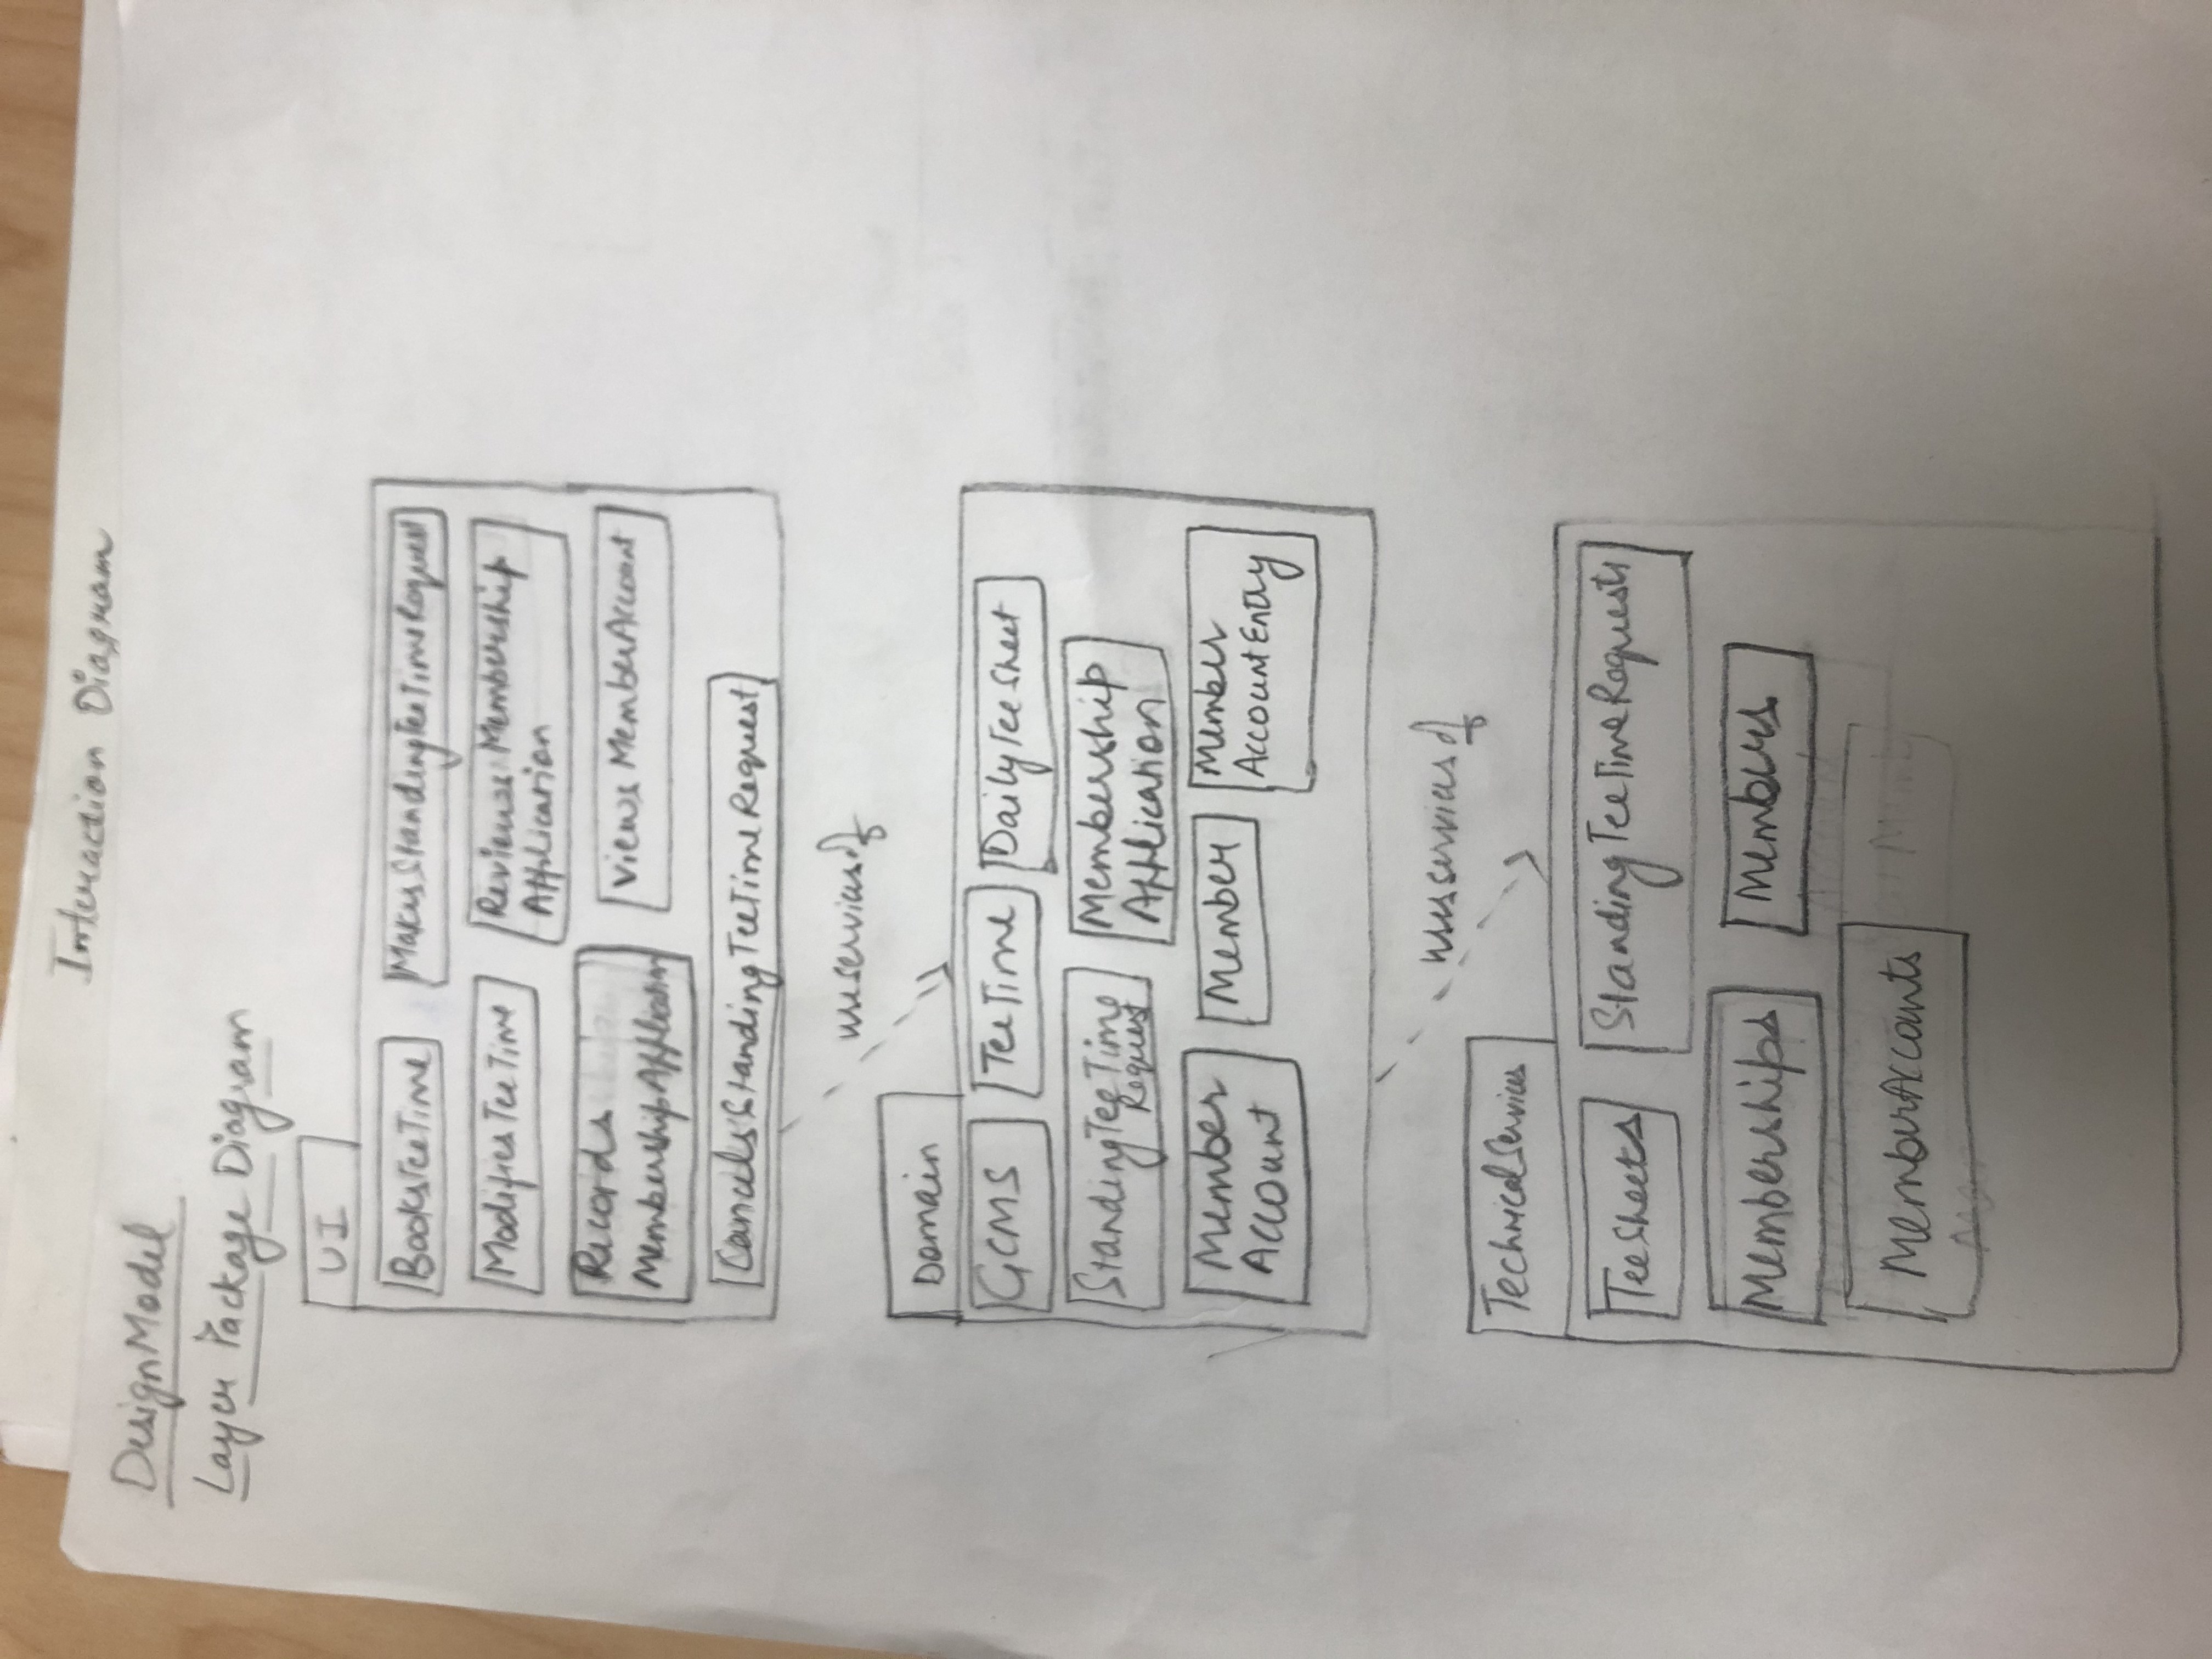 Interaction Diagram
DesignModel
Layer Package Diagram
UI
BooksTeeTime
MakesStandingTeeTimeRequest
ModifiesTeeTime
Reviews Membership
Application
Records
MembershipApplication
Views MemberAccount
CancelsStandingTeeTimeRequest
useservicesof
Domain
GCMS
TeeTime
DailyTeeSheet
StandingTeeTime
Request
Membership
Application
Member
Account
Member
Member
AccountEntry
usesservicesof
TechnicalServices
TeeSheets
StandingTeeTimeRequests
Memberships
Members
MemberAccounts